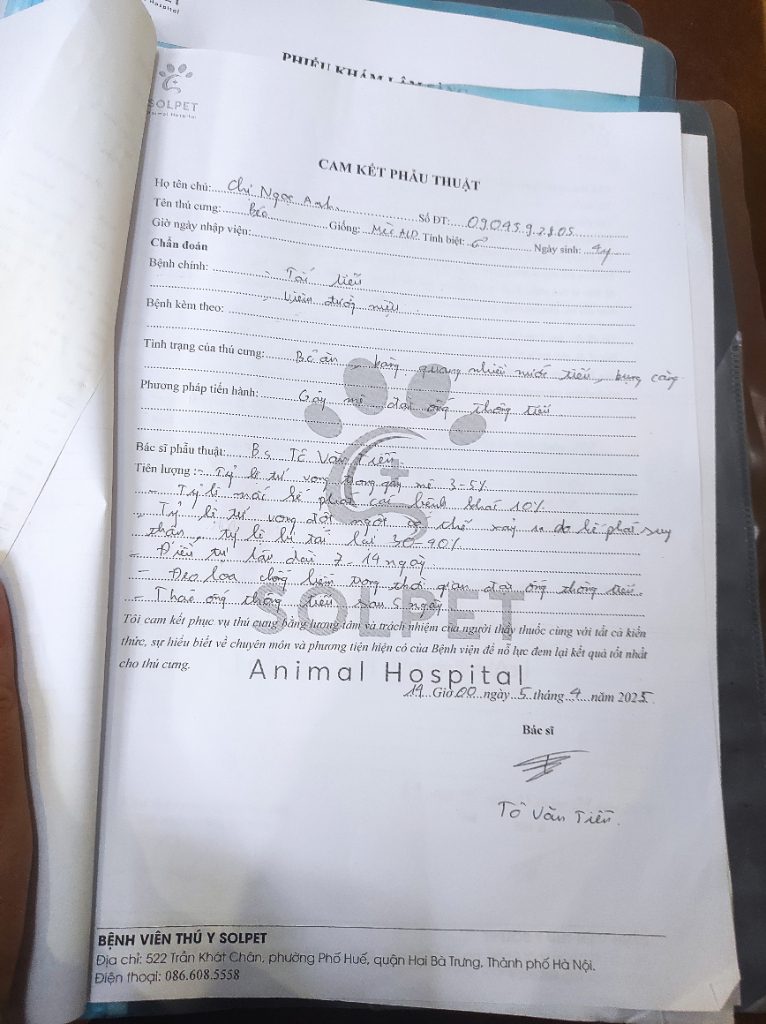 PHIẾU KHÁM LÂM SÀNG
SOLPET
Animal Hospital
CAM KẾT PHẪU THUẬT
Họ tên chủ: Chị Ngọc Anh Số ĐT: 09.045.9.28.05
Tên thú cưng: Béo Giống: Mèo ALD Tính biệt: ♂ Ngày sinh: 4y
Giờ ngày nhập viện:
Chẩn đoán
Bệnh chính: - Tắc tiểu
- Viêm đường niệu
Bệnh kèm theo:
Tình trạng của thú cưng: Bỏ ăn, bàng quang nhiều nước tiểu, bụng căng
Phương pháp tiến hành: Gây mê đặt ống thông tiểu
Bác sĩ phẫu thuật: Bs. Tô Văn Tiến
Tiên lượng: - Tỷ lệ tử vong trong gây mê 3-5%
- Tỷ lệ mắc kế phát các bệnh khác 10%
- Tỷ lệ tử vong đột ngột có thể xảy ra do kế phát suy
thận, tỷ lệ bị tái lại 30-90%
- Điều trị lâu dài 7-14 ngày
- Đeo loa chống liếm trong thời gian đặt ống thông tiểu
- Tháo ống thông tiểu sau 5 ngày
SOLPET
Tôi cam kết phục vụ thú cưng bằng lương tâm và trách nhiệm của người thầy thuốc cùng với tất cả kiến
thức, sự hiểu biết về chuyên môn và phương tiện hiện có của Bệnh viện để nỗ lực đem lại kết quả tốt nhất
cho thú cưng.
Animal Hospital
19 Giờ 00 ngày 5 tháng 4 năm 2025
Bác sĩ
Tô Văn Tiến.
BỆNH VIỆN THÚ Y SOLPET
Địa chỉ: 522 Trần Khát Chân, phường Phố Huế, quận Hai Bà Trưng, Thành phố Hà Nội.
Điện thoại: 086.608.5558